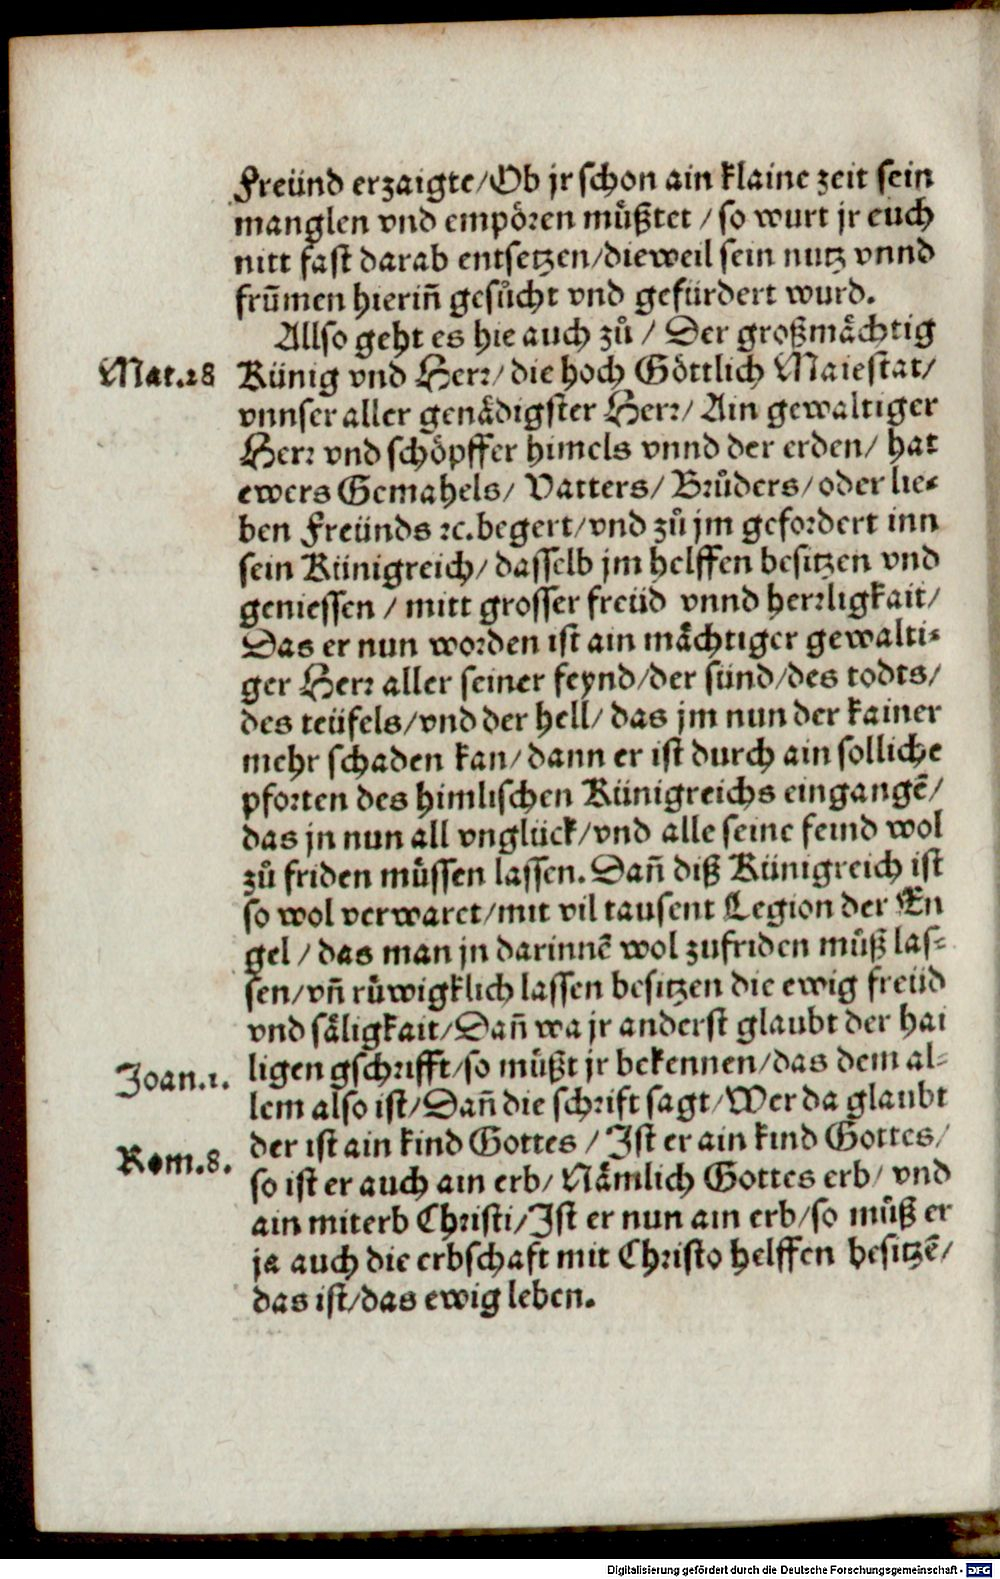 Freünd erzaigte/Ob jr schon ain klaine zeit sein
manglen vnd empören müßtet / so wurt jr euch
nitt fast darab entsetzen/dieweil sein nutz vnnd
frum̃en hieriñ gesůcht vnd gefürdert wurd.
Allso geht es hie auch zů / Der großmächtig
Mat.28 Künig vnd Herr/ die hoch Göttlich Maiestat/
vnnser aller genädigster Herr/ Ain gewaltiger
Herr vnd schöpffer himels vnnd der erden/ hat
ewers Gemahels/ Vatters/ Brůders/ oder lie-
ben Freünds ꝛc. begert/vnd zů jm gefordert inn
sein Künigreich/ dasselb jm helffen besitzen vnd
geniessen / mitt grosser freüd vnnd herrligkait/
Das er nun worden ist ain mächtiger gewalti-
ger Herr aller seiner feynd/der sünd/des todts/
des teüfels/vnd der hell/ das jm nun der kainer
mehr schaden kan/ dann er ist durch ain solliche
pforten des himlischen Künigreichs eingangē/
das jn nun all vnglück/vnd alle seine feind wol
zů friden müssen lassen. Dañ diß Künigreich ist
so wol verwaret/mit vil tausent Legion der En
gel / das man jn darinnē wol zufriden můß las-
sen/vñ růwigklich lassen besitzen die ewig freüd
vnd säligkait/Dañ wa jr anderst glaubt der hai
Joan.1. ligen gschrifft/so müßt jr bekennen/das dem al-
lem also ist/Dañ die schrift sagt/Wer da glaubt
Rom.8. der ist ain kind Gottes / Ist er ain kind Gottes/
so ist er auch ain erb/ Nämlich Gottes erb/ vnd
ain miterb Christi/Ist er nun ain erb/so můß er
ja auch die erbschaft mit Christo helffen besitzē/
das ist/das ewig leben.
Digitalisierung gefördert durch die Deutsche Forschungsgemeinschaft - DFG